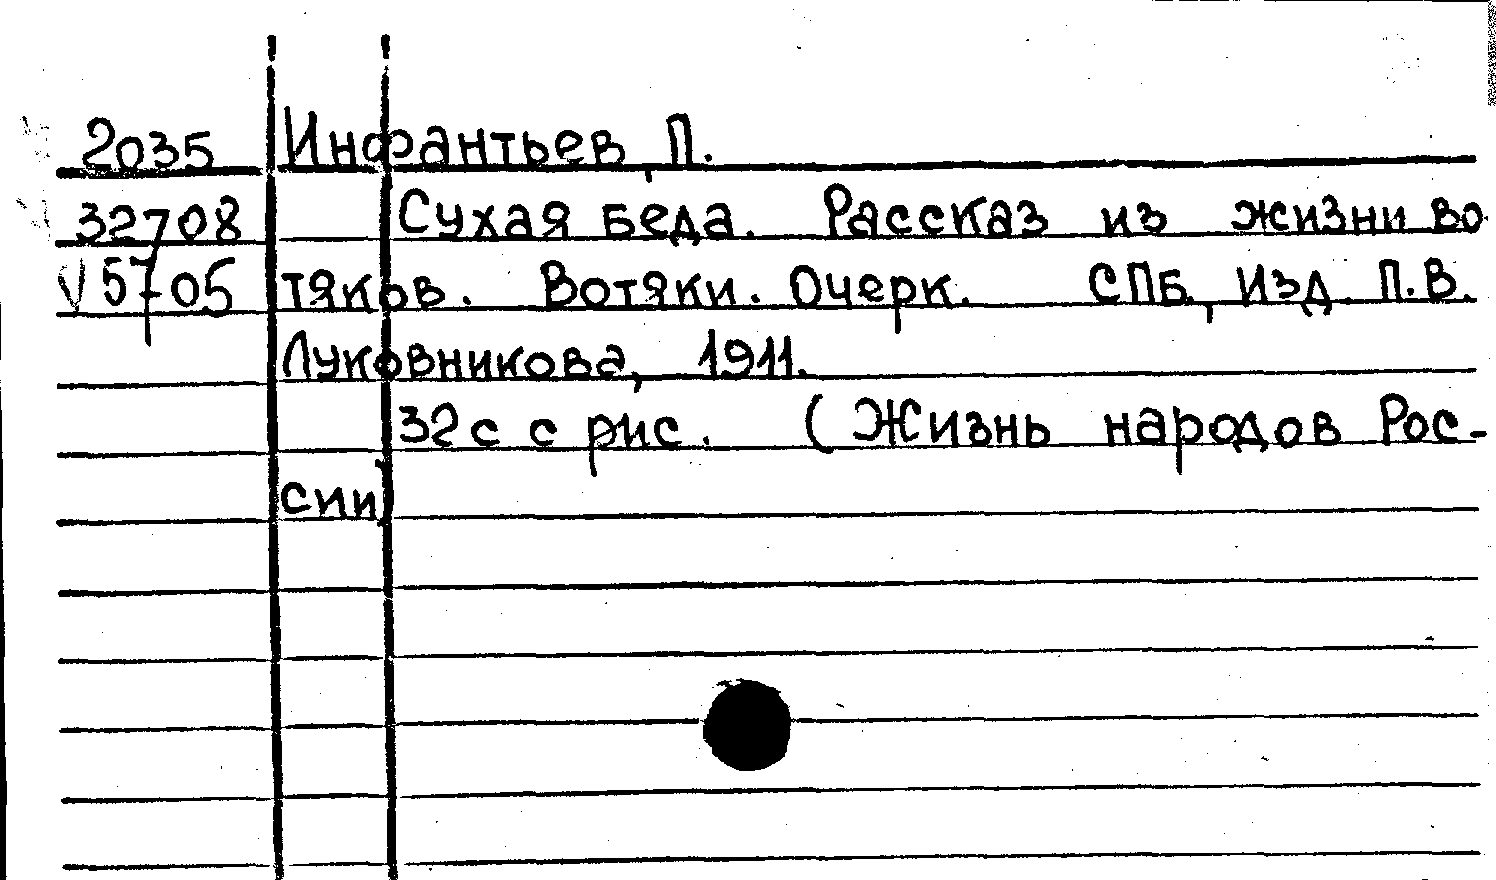 2035 Инфантьев, П.
32708 Сухая беда. Рассказ из жизни во-
V 57-05 тяков. Вотяки. Очерк. СПБ., Изд. П.В.
Луковникова, 1911.
32 с с рис. (Жизнь народов Рос-
сии)